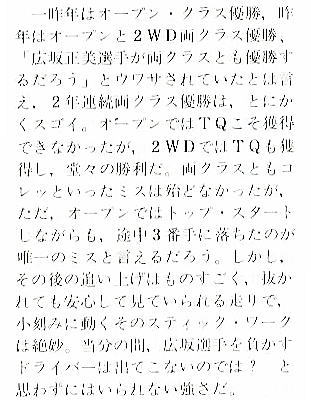 一昨年はオープン・クラス優勝，昨
年はオープンと２ＷＤ両クラス優勝、
「広坂正美選手が両クラスとも優勝す
るだろう」とウワサされていたとは言
え，２年連続両クラス優勝は，とにか
くスゴイ。オープンではＴＱこそ獲得
できなかったが，２ＷＤではＴＱも獲
得し，堂々の勝利だ。両クラスともコ
レッといったミスは殆どなかったが，
ただ，オープンではトップ・スタート
しながらも，途中３番手に落ちたのが
唯一のミスと言えるだろう。しかし，
その後の追い上げはものすごく，抜か
れても安心して見ていられる走りで，
小刻みに動くそのスティック・ワーク
は絶妙。当分の間，広坂選手を負かす
ドライバーは出てこないのでは？　と
思わずにはいられない強さだ。